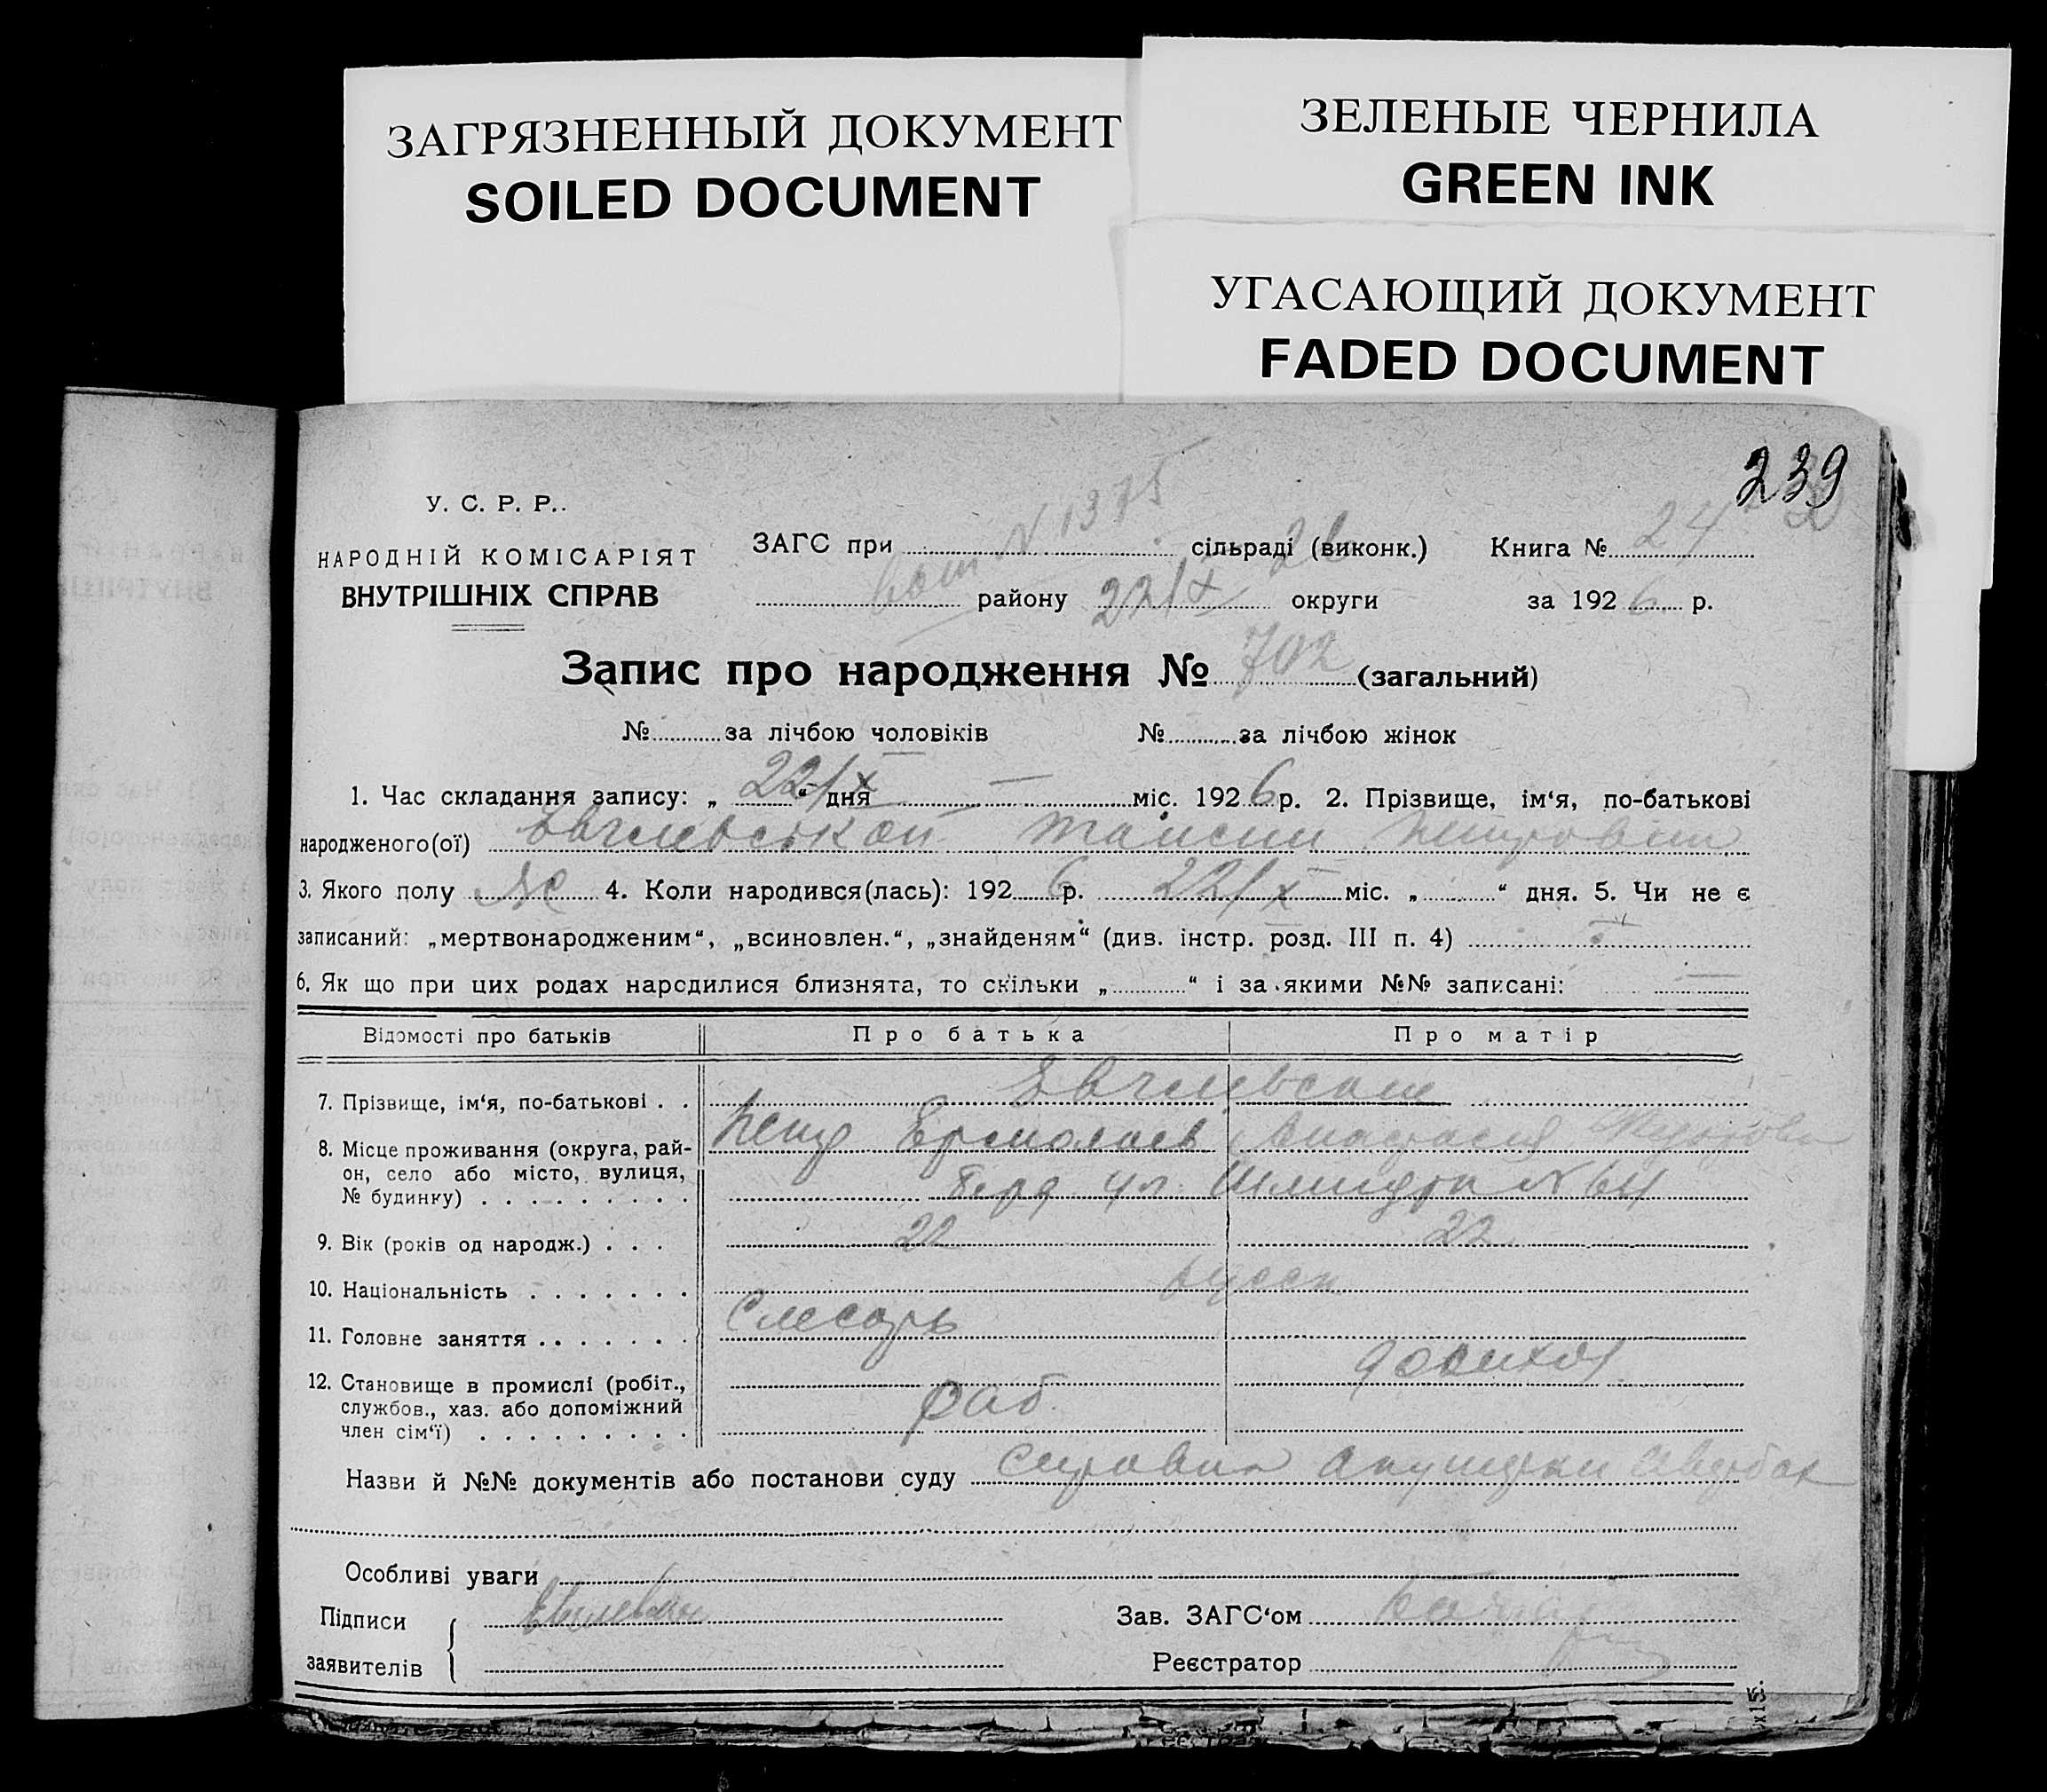 ЗАГРЯЗНЕННЫЙ ДОКУМЕНТ
SOILED DOCUMENT
ЗЕЛЕНЫЕ ЧЕРНИЛА
GREEN INK
УГАСАЮЩИЙ ДОКУМЕНТ
FADED DOCUMENT
239
У. С. Р. Р..
НАРОДНІЙ КОМІСАРІЯТ
ВНУТРІШНІХ СПРАВ
N 1375
ЗАГС при сільраді (виконк.) Книга № 24
району 22/X 26 округи за 1926 р.
Запис про народження № 702 (загальний)
№ за лічбою чоловіків № за лічбою жінок
1. Час складання запису: „ 22/X “ дня — міс. 1926 р. 2. Прізвище, ім‘я, по-батькові
народженого(ої) Таисии Петровни
3. Якого полу ж 4. Коли народився(лась): 1926 р. 22/X міс. „ “ дня. 5. Чи не є
записаний: „мертвонародженим“, „всиновлен.“, „знайденям“ (див. інстр. розд. III п. 4)
6. Як що при цих родах народилися близнята, то скільки „ “ і за якими №№ записані: —
Відомості про батьків Про батька Про матір
7. Прізвище, ім‘я, по-батькові . .
8. Місце проживання (округа, рай-
он, село або місто, вулиця,
№ будинку) . . . . . . . . .
Петр Ермолаев Анастасия
ул. Шмидта N 64
9. Вік (років од народж.) . . . 22 22
10. Національність . . . . . . . русск
11. Головне заняття . . . . . . . Слесарь
12. Становище в промислі (робіт.,
службов., хаз. або допоміжний
член сім‘ї) . . . . . . . . .
раб. домохоз
Назви й №№ документів або постанови суду справка акушерки
Особливі уваги
Підписи
заявителів
Зав. ЗАГС‘ом
Реєстратор